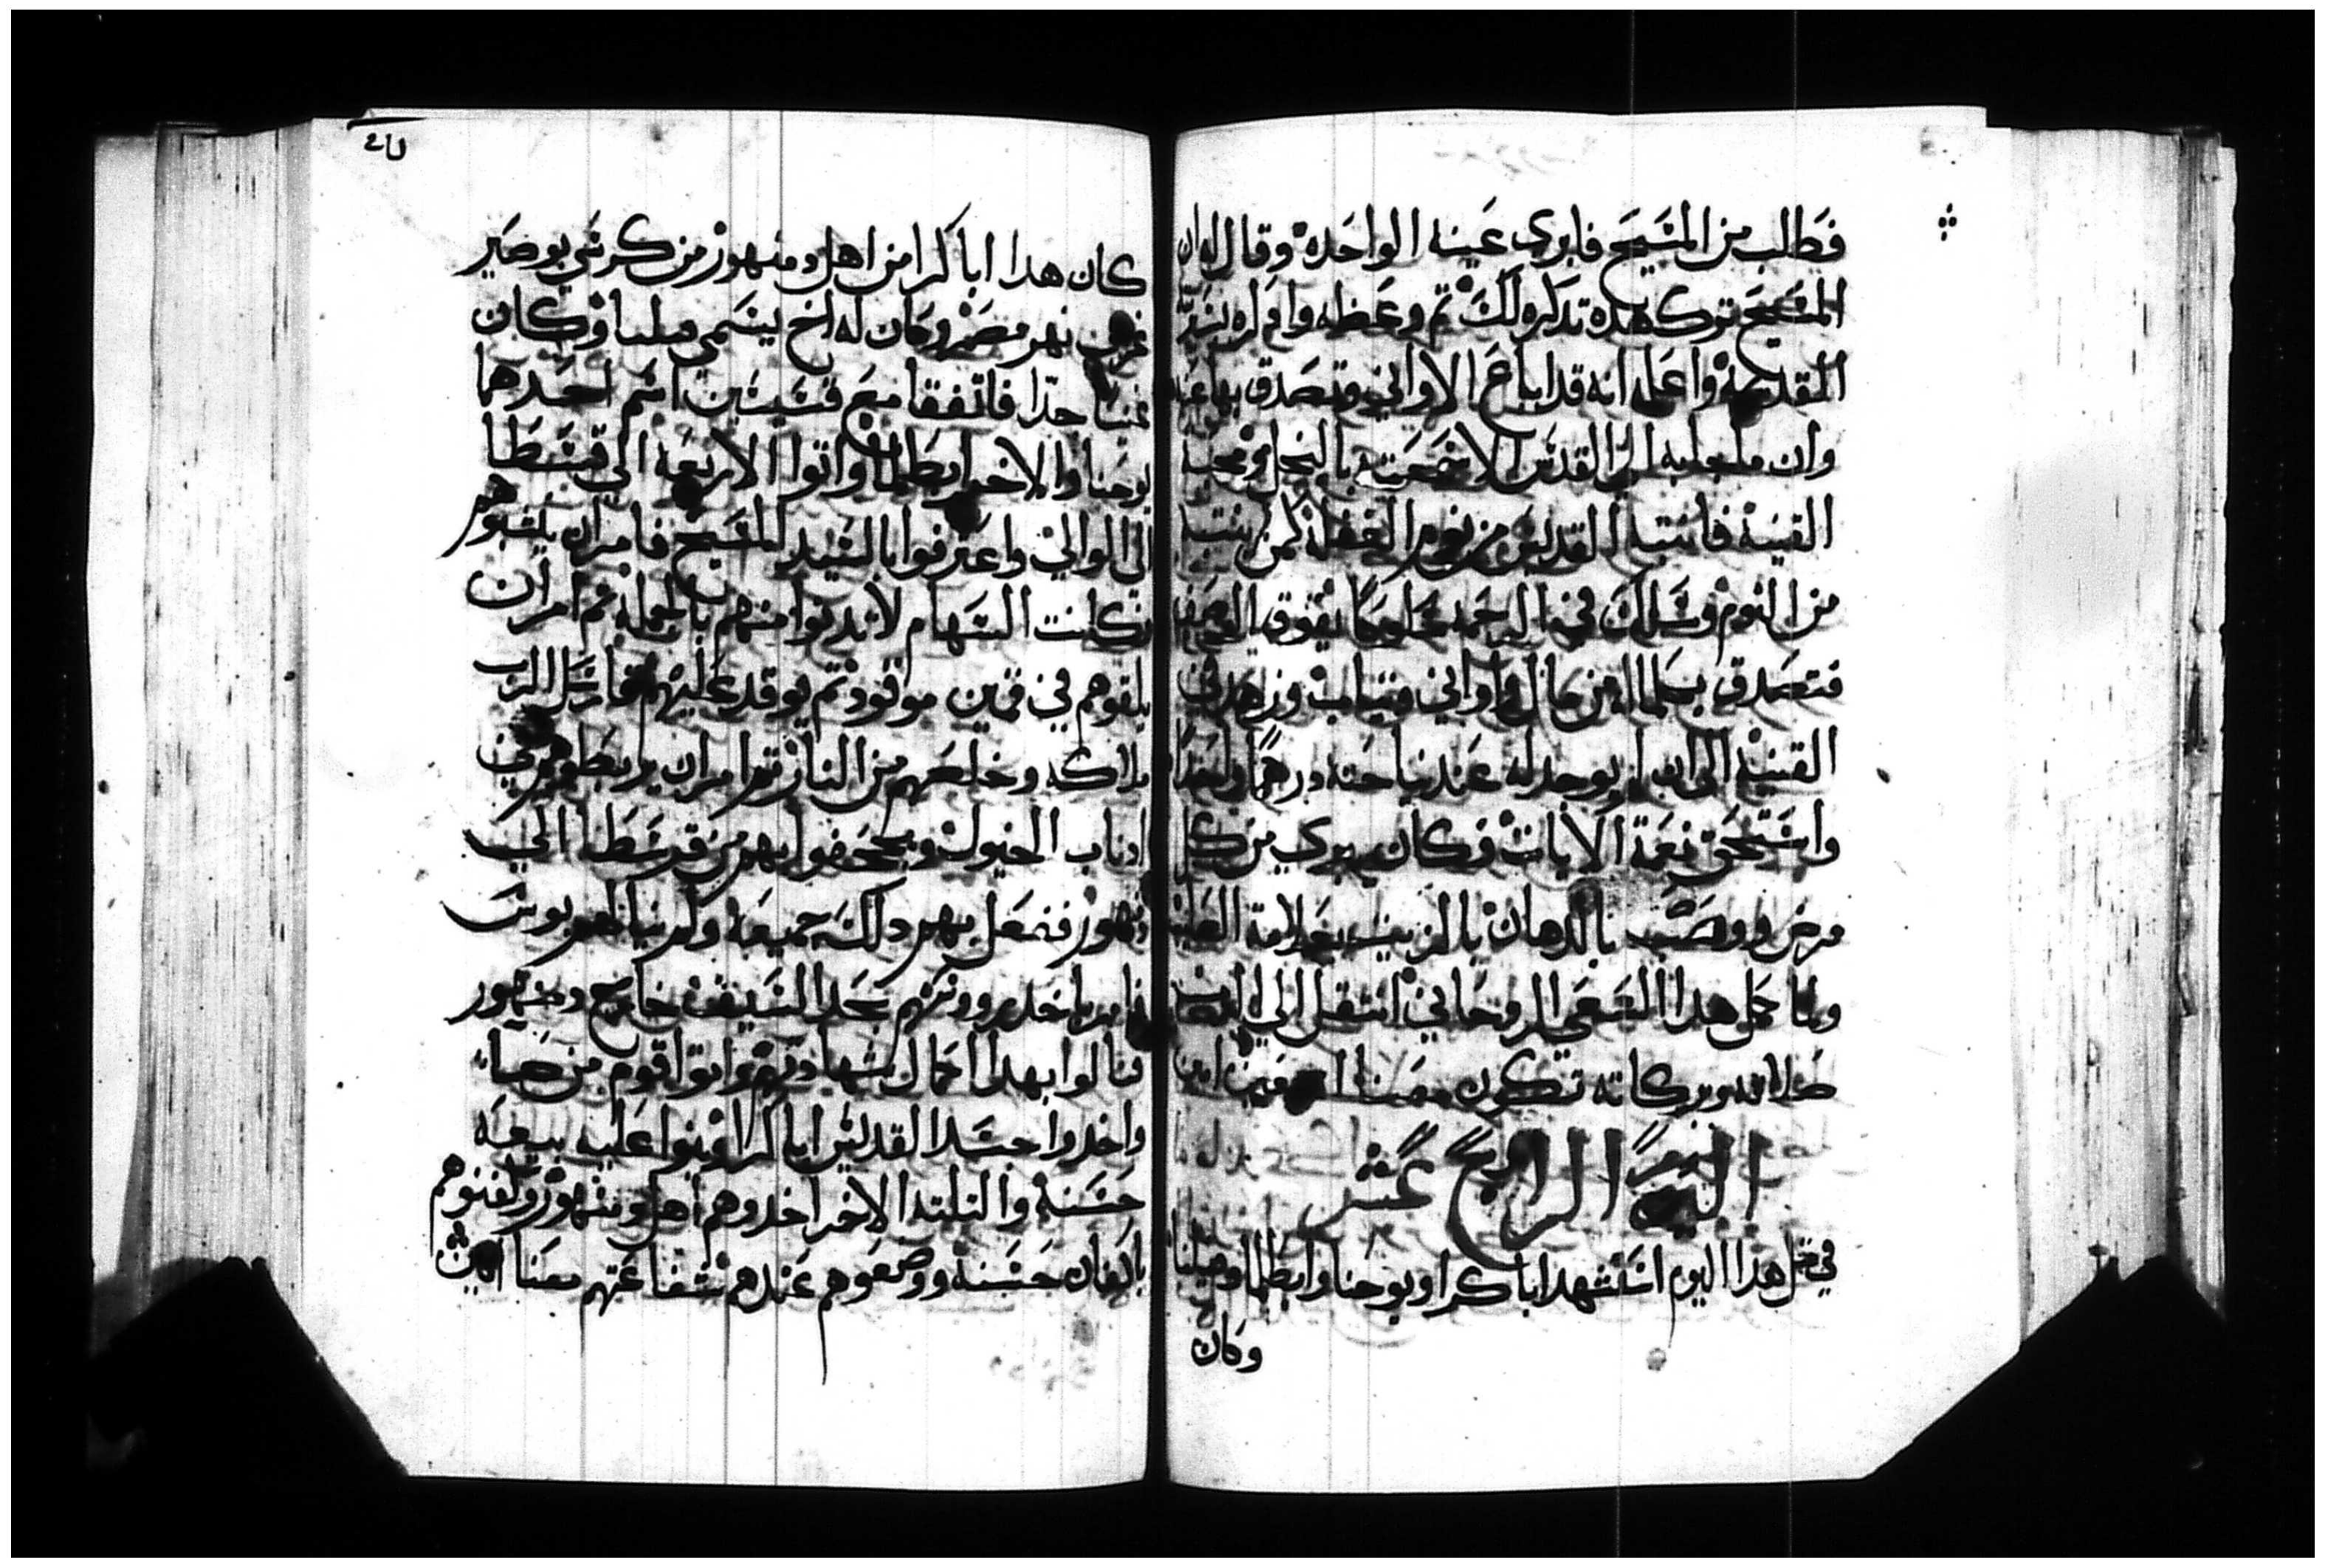 فطلب من المسيح فابرى عينه الواحده وقال له ان
المسيح ترك هده تدكره لك تم وعظه وامره
المقدسه واعلمه انه قد اباع الاواني وتصدق بها عنه
وان ما جلبه القديس الا سمعته بالبخل ومحبة
القنيه فانتبه القديس من نوم الغفله كمن ينتبه
من النوم وسلك في الرحمه سلوكا يفوق الوصف
فتصدق بكلما من مال واواني وتياب وزهد في
القنيه الى ان لم يوجد له عند نياحته درهما واحدا
واستحق نعمة الايات فكان يبري من كل
مرض ووصب بالدهان بالزيت بعلامة الصليب
ولما كمل هدا السعي الروحاني انتقل الى الرب
صلاته وبركاته تكون معنا امين
اليوم الرابع عشر
في متل هدا اليوم استشهد اباكرا ويوحنا وابطلما وفيلبا
وكان
كان هدا اباكرا من اهل دمنهور من كرسي بوصير
غربي نهر مصر وكان له اخ يسمى فيلبا وكان
غنيا جدا فاتفقا مع قسيسين اسم احدهما
يوحنا والاخر ابطلما واتوا الاربعه الى قرطسا
الى الوالي واعترفوا بالسيد المسيح فامر ان ينشبوهم
فكانت السهام لا تدنوا منهم بالجمله تم امر ان
يلقوهم في قمين موقود تم يوقد عليهم فارسل الرب
ملاكه وخلصهم من النار تم امر ان يربطوهم في
ادناب الخيول ويجحفوا بهم من قرطسا الى
دمنهور ففعل بهم دلك جميعه ولم ينالهم بوس
فامر باخد رووسهم بحد السيف خارج دمنهور
فنالوا بهدا اكمال شهادتهم واتوا قوم من صا
واخدوا جسد القديس اباكرا وبنوا عليه بيعه
حسنه والتلته الاخر اخدوهم اهل دمنهور وكفنوهم
باكفان حسنه ووضعوهم عندهم شفاعتهم معنا امين